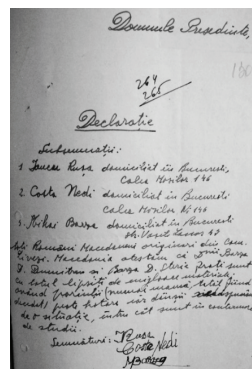 Domnule Președinte,
264
265
Declarație
Subsemnații:
1. Rusa domiciliat în București,
Calea Moșilor 146
2. Costa Nedi domiciliat în
București
Calea Moșilor No 146
3. Mihai Barza domiciliat în București
str. Vasile Lascar
toți Români Macedoneni originari din com.
Macedonia atestăm că D-nii Barza
D. și Barza D. Sterie frați sunt
cu totul lipsiți de mijloace materiale,
având părinții (numai mamă, tatăl fiind
peste hotare iar dânșii
de o situație, întru cât sunt în continuare
de studii.
Semnături: Rusa
Costa Nedi
MBarza